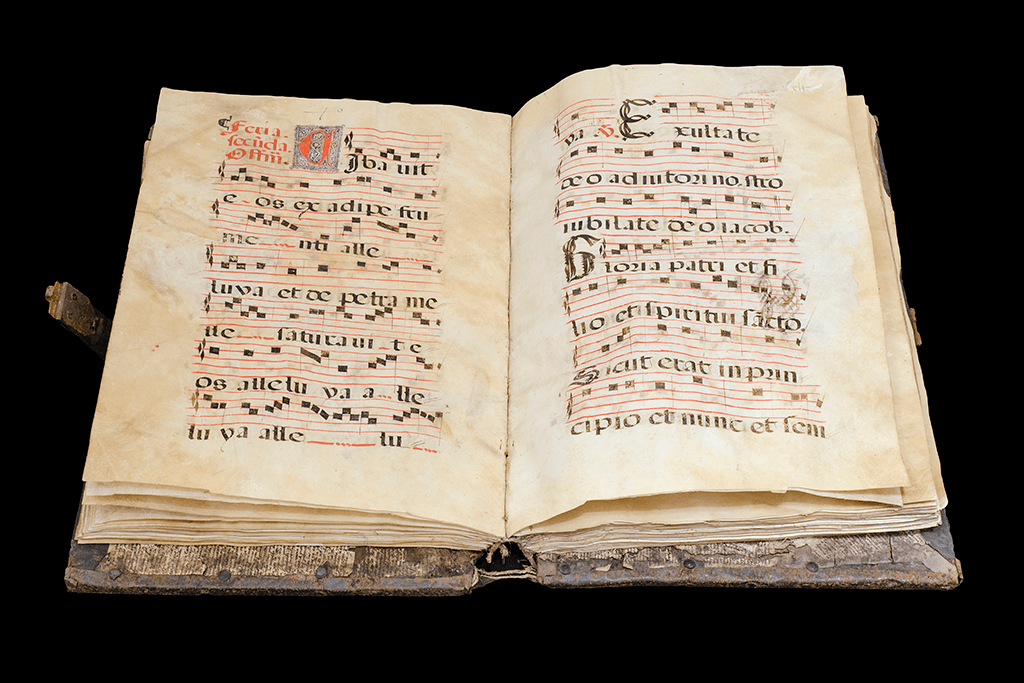 Feria.
secūda.
Offm̄.
CIbavit
e os ex adipe fru
me nti alle
luya et de petra me
lle saturavit e
os allelu ya a lle
lu ya alle lu
ya ℣. Exultate
deo adiutori nostro
iubilate deo iacob.
Gloria patri et fi
lio et spiritui sācto.
Sicut erat in prin
cipio et nunc et sem